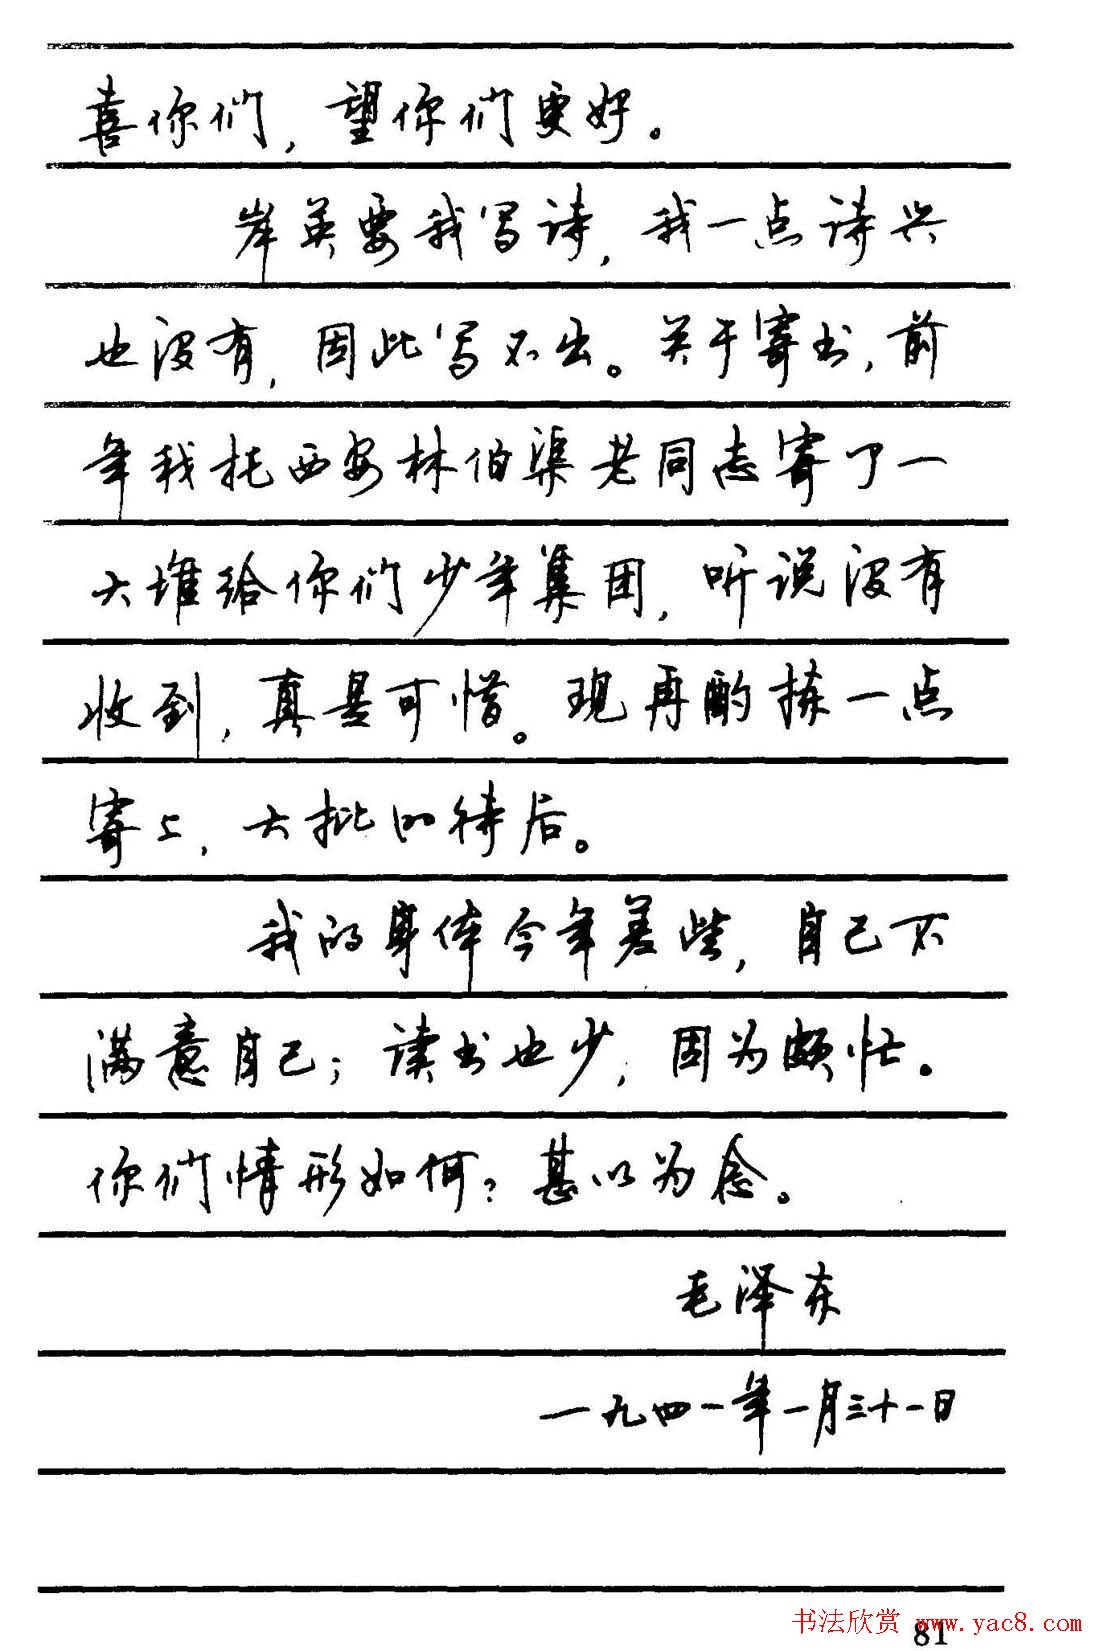 喜你们，望你们更好。
岸英要我写诗，我一点诗兴
也没有，因此写不出。关于寄书，前
年我托西安林伯渠老同志寄了一
大堆给你们少年集团，听说没有
收到，真是可惜。现再酌拣一点
寄上，大批的待后。
我的身体今年差些，自己不
满意自己；读书也少，因为颇忙。
你们情形如何？甚以为念。
毛泽东
一九四一年一月三十一日
书法欣赏 www.yac8.com
81